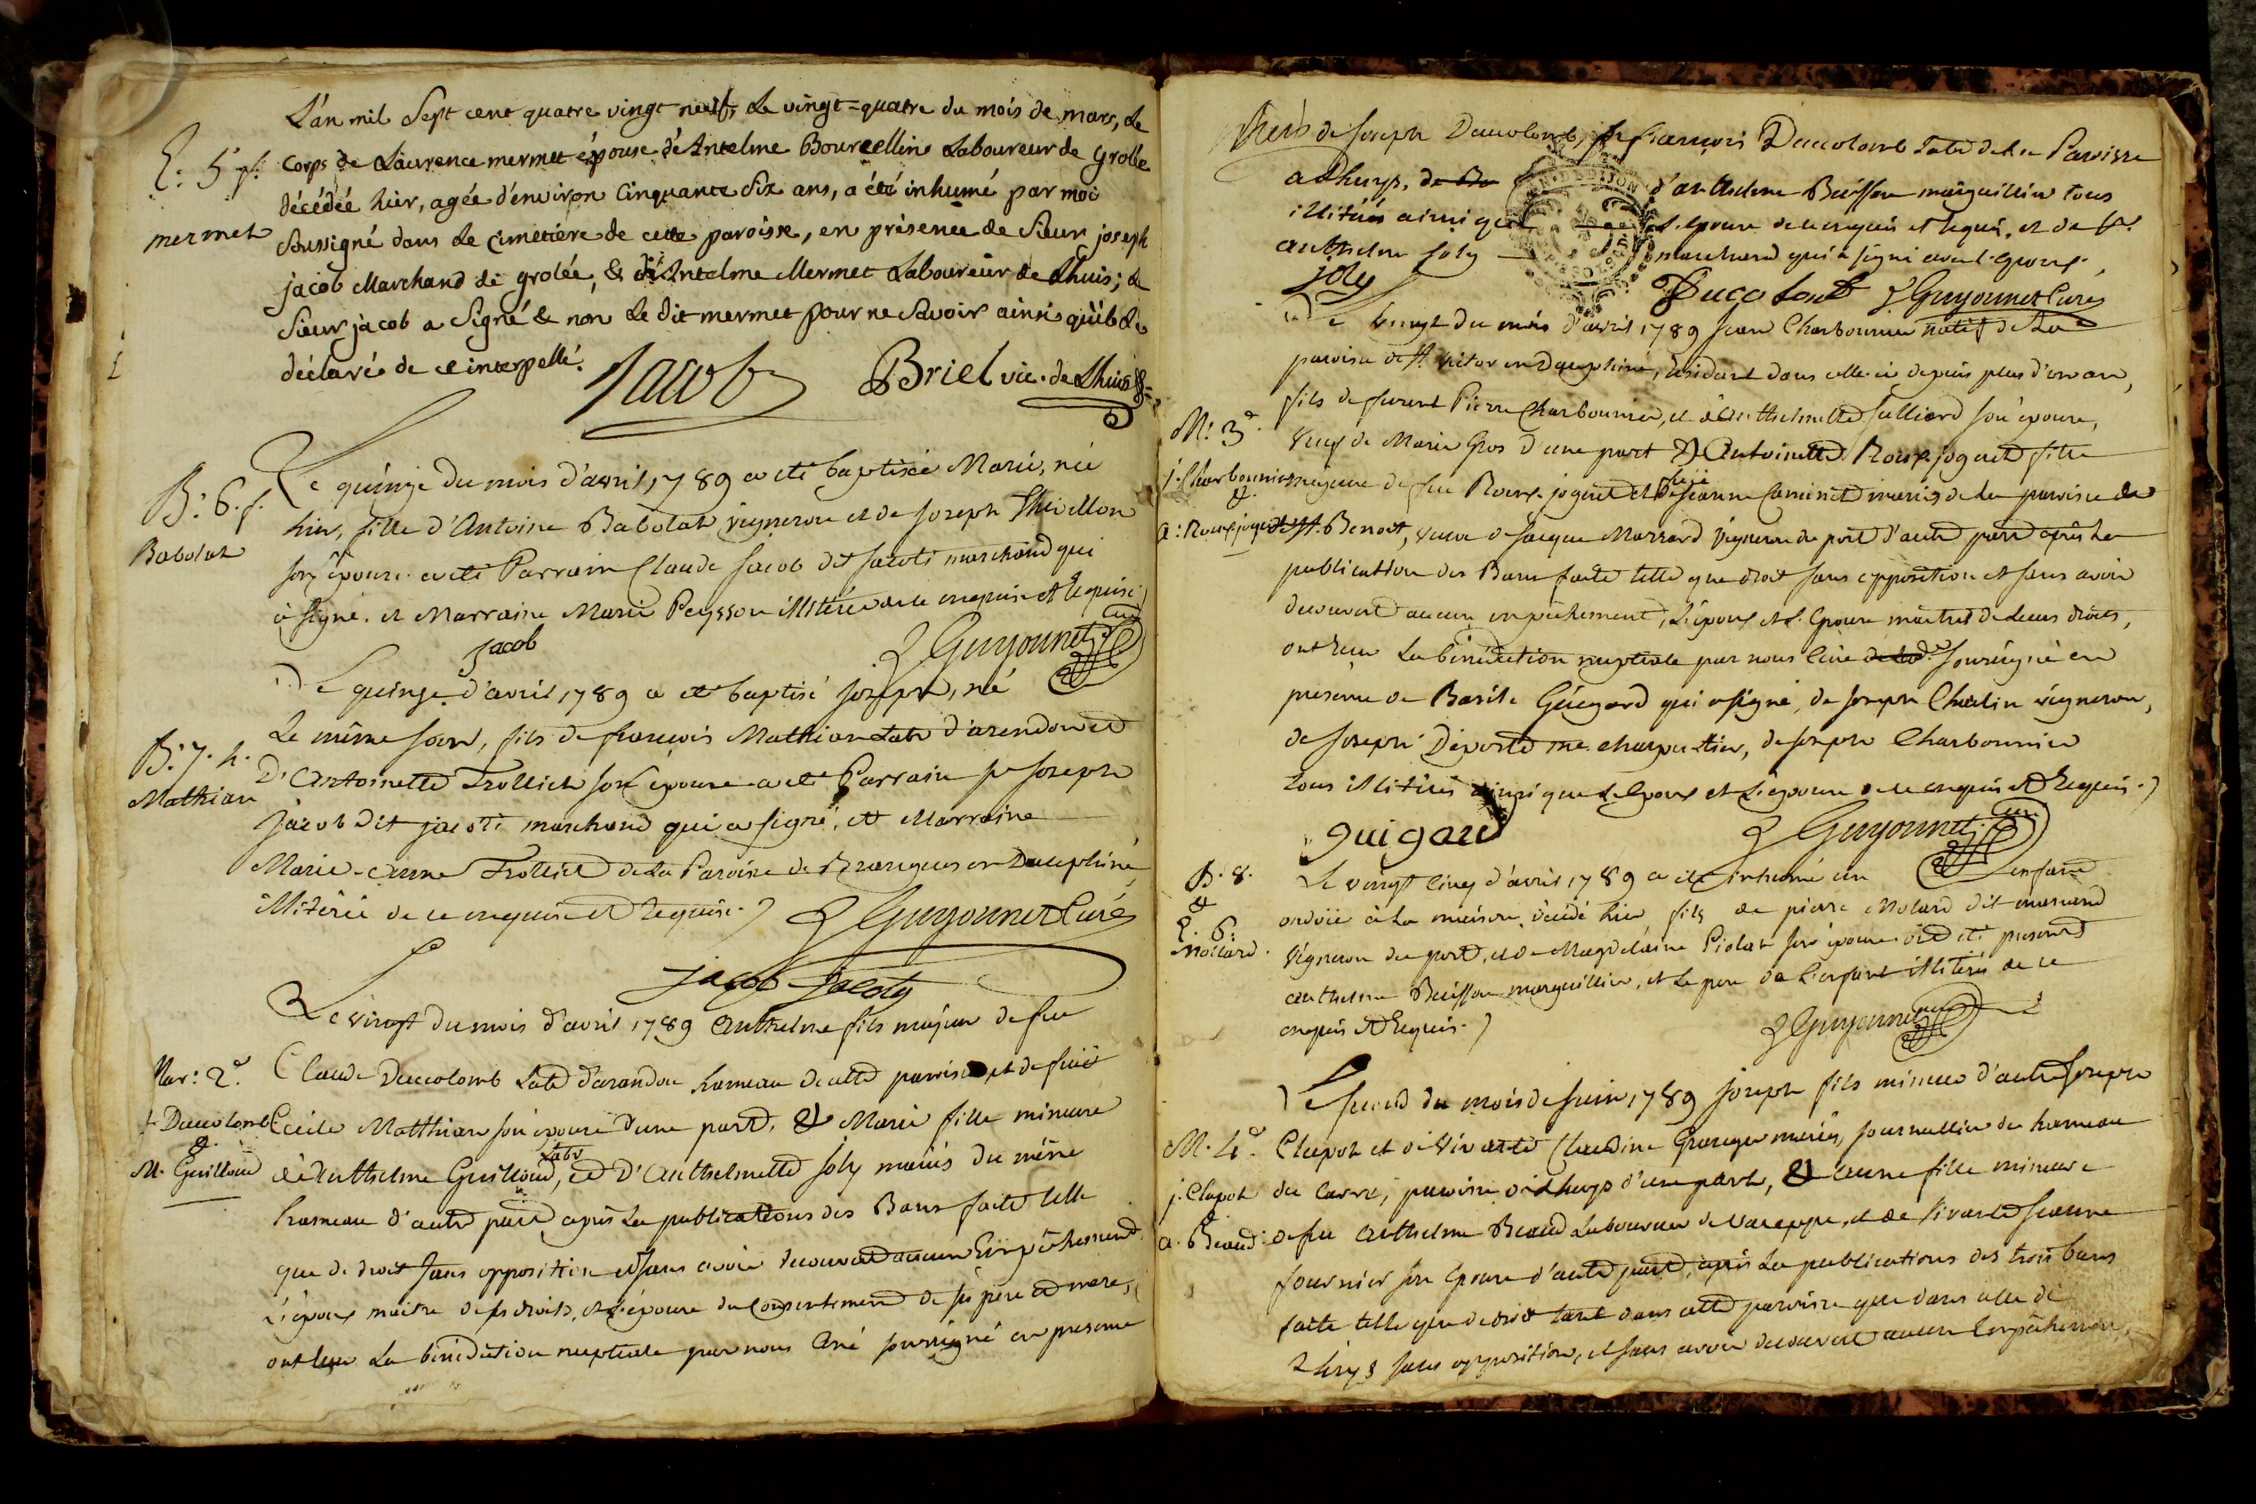 L'an mil Sept cent quatre vingt neuf, Le vingt=quatre du mois de mars, Le
E: 5 f:
corps de Laurence mermet épouse d'Antelme Bourcellin Laboureur de Grolée
décédée hier, agée d'environ Cinquante Six ans, a été inhumé par moi
mermet
Soussigné dans Le Cimetière de cette paroisse, en présence de Sieur joseph
jacob Marchand de grolée, & d'Antelme Mermet Laboureur de Lhuis; Le
Sieur jacob a Signé & non Le dit mermet pour ne Savoir ainsi qu'il L'a
déclaré de ce interpellé.
Jacob Briel vic. de Lhuis
Le quinze du mois d'avril 1789 a eté baptisée Marie, née
B: 6. f.
Babolat
hier, fille d'Antoine Babolat vigneron et de Joseph Thivollon
son épouse. a eté Parrain Claude Jacob dit Jacoti marchand qui
à signé. et Marraine Marie Peysson illiterée de ce enquise et requise
Jacob Guyonnet curé
Le quinze d'avril 1789 a eté baptisé Joseph, né
Le même jour, fils de françois Mathian Labr d'arendon et
B: 7. h.
Mathian
D'Antoinette Trolliet son épouse a eté Parrain Sr Joseph
Jacob dit jacoti marchand qui a signé, et Marraine
Marie-anne Trolliet de La Paroisse de Brangues en Dauphiné
illiterée de ce enquise et requise.
Guyonnet Curé
jacob Jacoty
Le vingt du mois d'avril 1789 Anthelme fils majeur de feu
Mar: 2e.
Claude Ducolomb Labr d'arandon hameau de cette paroisse et de fuë
Ducolomb
&
M. Guilloud
Cecile Matthian son épouse d'une part, & Marie fille mineure
d'Anthelme Guilloud, Labr et D'Anthelmette Joly mariés du même
hameau d'autre part après La publications des Bans faite telle
que de droit sans opposition et sans avoir decouvert aucun Empêchement
L'époux maitre de ses droits, et L'épouse du Consentement de ses père et mere,
ont reçu La bénédiction nuptiale par nous Curé soussigné en presence
de Joseph Ducolomb, de françois Ducolomb Labr de La Paroisse
d'anthelme Buisson marguillier tous
illitérés ainsi que L'epouse de ce enquis et requis, et de Sr
anthelme Joly marchand qui a signé avec L'epoux.
Joly Ducolomb Guyonnet Curé
Le vingt du mois d'avril 1789 Jean Charbonnier natif de La
paroisse de St. victor en Dauphiné, résidant dans celle-ci depuis plus d'un an,
fils de furent Pierre Charbonnier, et d'Anthelmette Julliard son épouse,
M: 3e.
veuf de Marie Gros d'une part & Antoinette Roux joguet fille
j. Charbonnier
&
a: Roux joguet
majeure de feu Roux joguet et de Jeanne Caminet mariés de La paroisse de
St. Benoit, veuve de Jacque Massard vigneron du port d'autre part après La
publication des Bans faite telle que droit sans opposition et sans avoir
decouvert aucun empêchement, L'époux et L'Epouse maitres de Leurs droits,
ont reçu La bénédiction nuptiale par nous Curé soussigné en
presence de Basile Guigard qui a signé, de Joseph Chalin vigneron,
de Joseph Deporte me. charpentier, de Joseph Charbonnier
tous illitérés ainsi que L'Epoux et L'épouse de ce enquis et Requis.
guigard Guyonnet curé
B. 8.
&
E. 6:
Mollard.
Le vingt cinq d'avril 1789 a eté inhumé un enfant
ondoié à La maison, décédé hier fils de pierre Molard dit
vigneron du port, et de Magdelaine Piolat son épouse. ont eté presents
anthelme Buisson marguillier, et Le pere de L'enfant illitérés de ce
enquis et Requis.
Guyonnet curé
Le second du mois de Juin 1789 Joseph fils mineur d'autre Joseph
M. 4e.
Clapot et de vivante Claudine Granger mariés, Journallier du hameau
j. Clapot
&
a. Beaud
du Carre, paroisse de Lhuys d'une part, & anne fille mineure
de feu Anthelme Beaud Laboureur de, et de vivante Jeanne
fournier son Epouse d'autre part, après La publications des trois bans
faite telle que de droit tant dans cette paroisse que dans celle de
Lhuys sans opposition, et sans avoir decouvert aucun Empêchement,